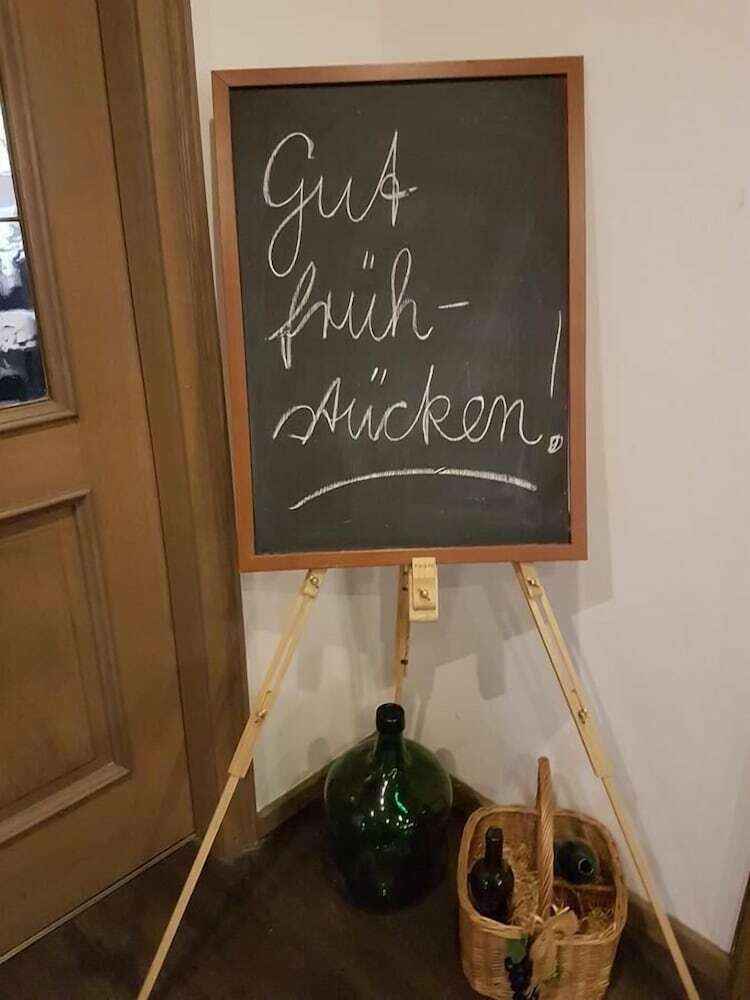 Gut
früh-
stücken!